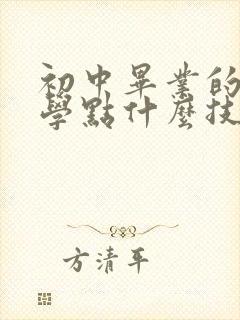 初中畢業的
學點什麼技
方清平